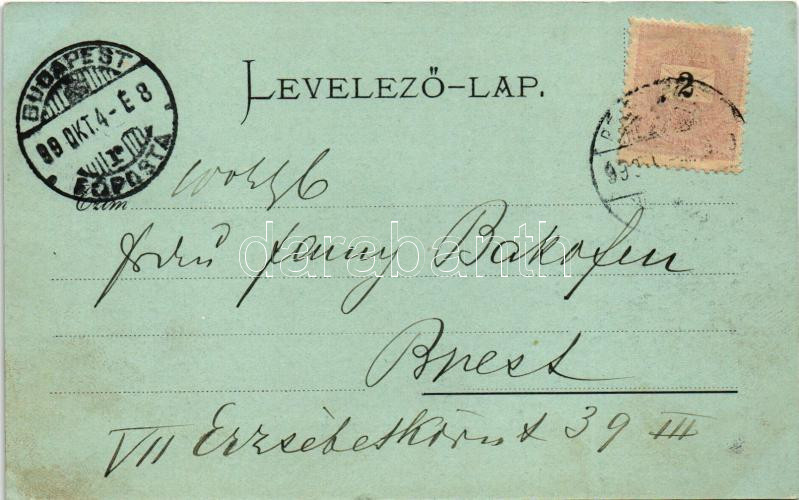 BUDAPEST
99 OKT. 4 - É 8
r
FŐPOSTA
LEVELEZŐ-LAP.
2
Czím
Frau Jenny Bakofen
Bpest
VII Erzsébetkörut 39 III
darabanth